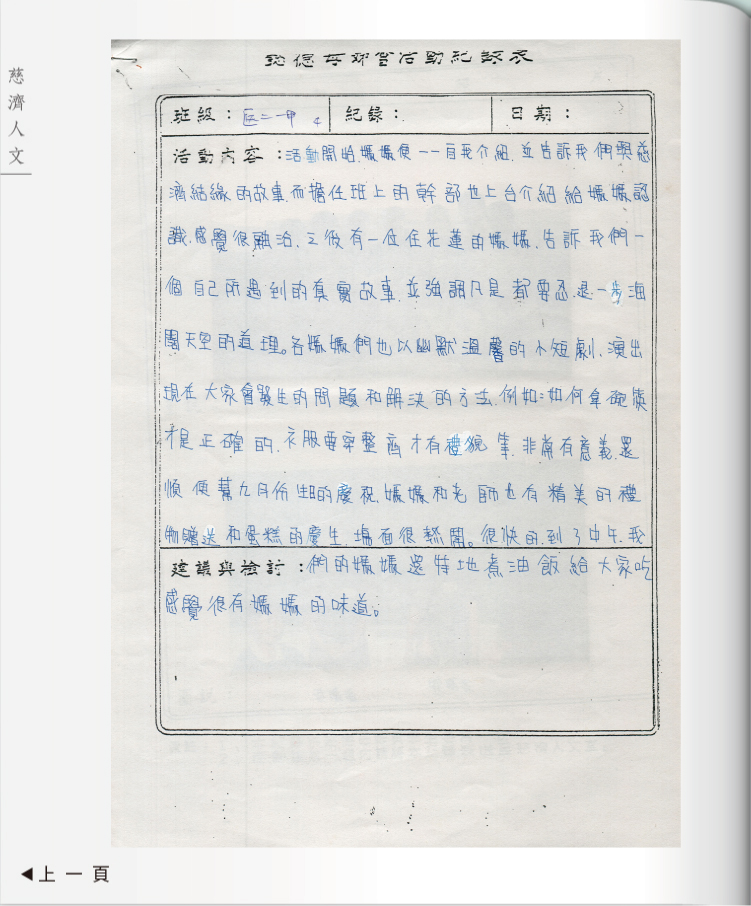 慈
濟
人
文
懿德母姊會活動紀錄表
班級：医二甲
紀錄：
日期：
活動內容：活動開始，媽媽便一一自我介紹，並告訴我們與慈
濟結緣的故事，而擔任班上的幹部也上台介紹給媽媽認
識，感覺很融洽，之後有一位住花蓮的媽媽，告訴我們一
個自己所遇到的真實故事，並強調凡是都要忍，退一步海
闊天空的道理。各媽媽們也以幽默溫馨的小短劇，演出
現在大家會發生的問題和解決的方法，例如：如何拿碗筷
才是正確的，衣服要穿整齊才有禮貌等，非常有意義，還
順便幫九月份生日的慶祝，媽媽和老師也有精美的禮
物贈送和蛋糕的慶生，場面很熱鬧。很快的，到了中午，我
建議與檢討：們的媽媽還特地煮油飯給大家吃
感覺很有媽媽的味道。
◀上一頁